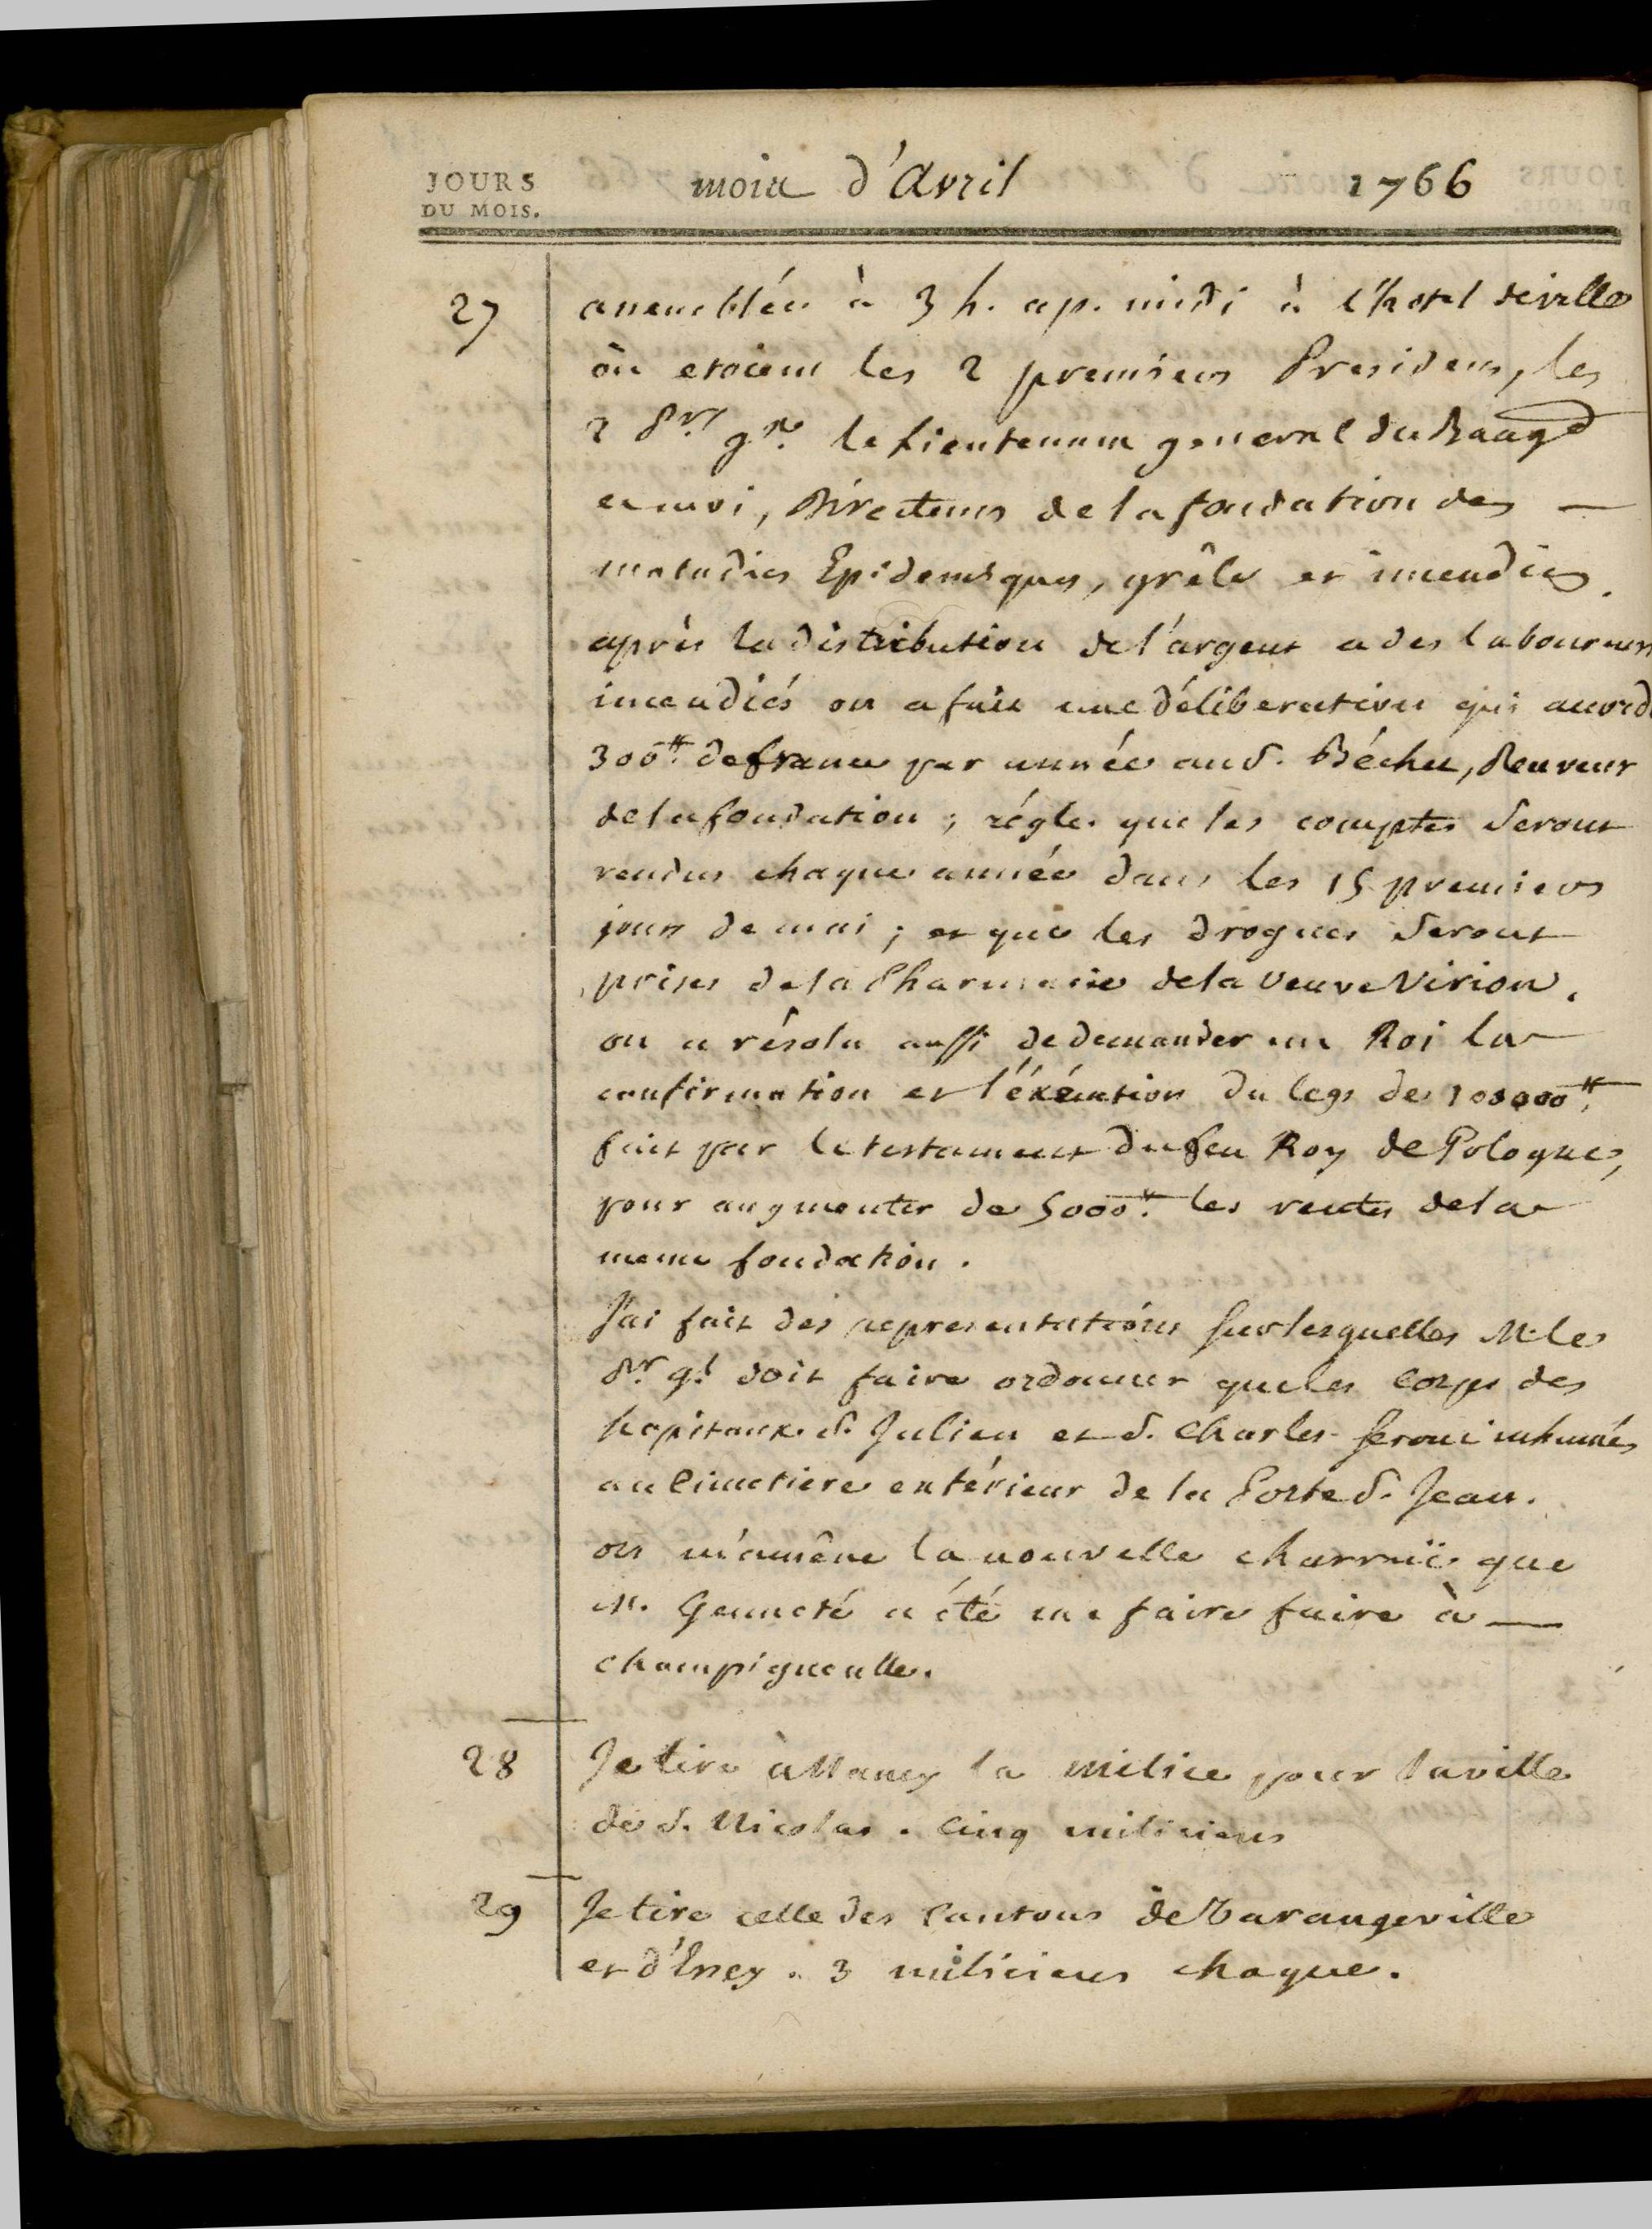 JOURS
DU MOIS.
mois d'Avril 1766
27 assemblée à 3 h. ap. midi à l'hotel de ville
où etoient les 2 premiers Presidens, les
2 Prs grx le Lieutenant general du Baage
et moi, Directeurs de la fondation des —
maladies Epidemiques, grêle et incendies.
après la distribution de l'argent a des laboureurs
incendiés on a fait une déliberation qui accorde
300tt de france par année au S. Béchet, Receveur
de la fondation ; régle que les comptes Seront
rendus chaque année dans les 15 premiers
jours de mai ; et que les drogues Seront
prises de la Pharmacie de la veuve Virion.
on a résolu aussi de demander au Roi la
confirmation et l'éxécution du legs des 100000tt
fait par le testament du feu Roy de Pologne,
pour augmenter de 5000tt les rentes de la
meme fondation.
J'ai fait des representations sur lesquelles M. le
Pr gl doit faire ordonner que les corps des
hopitaux S. Julien et S. Charles seront inhumés
au Cimetiere extérieur de la Porte S. Jean.
on m'amêne la nouvelle charruë que
M. Genneté a été me faire faire à —
champigneulle.
28 Je tire à Nancy la milice pour la ville
de S. Nicolas. Cinq miliciens
29 Je tire celle des Cantons de Varangeville
et d'Essey. 3 miliciens chaque.